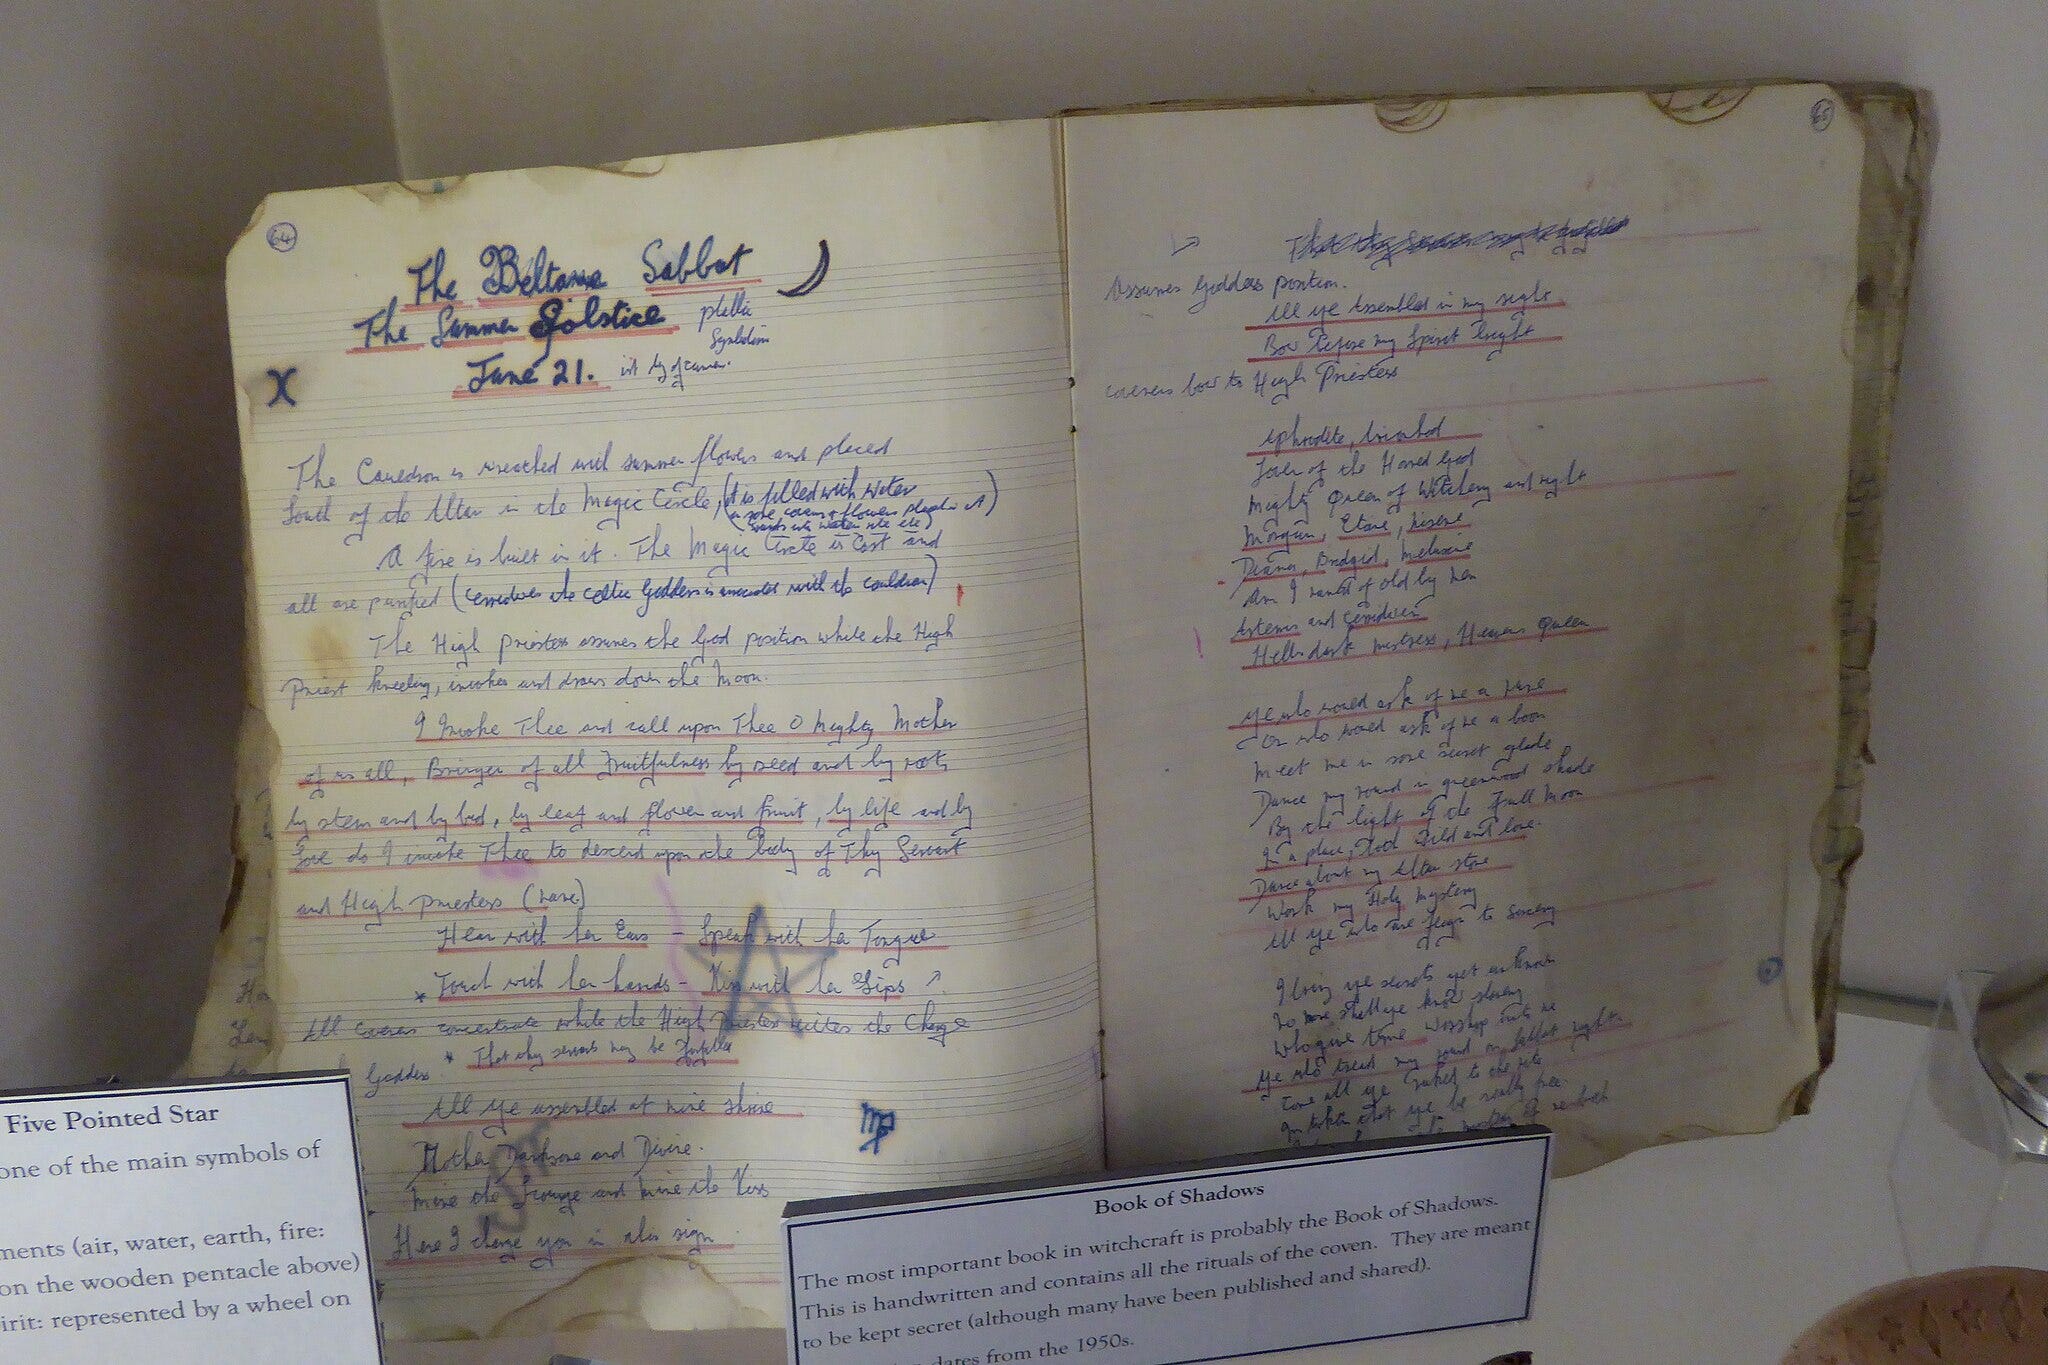 64
The Beltane Sabbat
The Summer Solstice
June 21.
phallic
Symbolism
X
The Cauldron is wreathed with summer flowers and placed
South of the Altar in the Magic Circle, (it is filled with water
A fire is built in it. The Magic Circle is Cast and
all are purified (Cerridwen the Celtic Goddess is associated with the cauldron)
The High Priestess assumes the God position while the High
Priest kneeling, invokes and draws down the Moon.
I Invoke Thee and call upon Thee O Mighty Mother
of us all, Bringer of all Fruitfulness by seed and by root,
by stem and by bud, by leaf and flower and fruit, by life and by
love do I invoke Thee to descend upon the body of Thy Servant
and High Priestess (name)
Hear with her Ears - Speak with her Tongue
* Touch with her hands - Kiss with her Lips
All coveners concentrate while the High Priestess utters the Charge
Goddess * That thy servants may be fulfilled
All ye assembled at mine shrine
Mother Darksome and Divine.
Mine the Scourge and mine the Kiss
Here I charge you in this sign
65
Assumes Goddess position.
All ye Assembled in my sight
Bow before my Spirit bright
coveners bow to High Priestess
Aphrodite, Arianrhod
Lover of the Horned God
Mighty Queen of Witchery and night
Morgan, Etain, Nisene
Diana, Bridgid, Melusine
Am I named of old by men
Artemis and Cerridwen
Hell's dark mistress, Heavens Queen
Ye who would ask of me a rune
Or who would ask of me a boon
Meet me in some secret glade
Dance my round in greenwood shade
By the light of the Full Moon
In a place, wild and lone.
Dance about my Altar stone
Work my Holy mystery
All ye who are feign to sorcery
I bring ye secrets yet unknown
No more shall ye know slavery
Who give true worship unto me
Ye who tread my round on Sabbat night
Come all ye naked to the rite
In token that ye be really free.
Five Pointed Star
one of the main symbols of
ments (air, water, earth, fire:
on the wooden pentacle above)
irit: represented by a wheel on
Book of Shadows
The most important book in witchcraft is probably the Book of Shadows.
This is handwritten and contains all the rituals of the coven. They are meant
to be kept secret (although many have been published and shared).
dates from the 1950s.